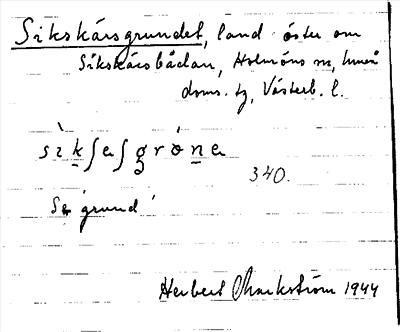 Sikskärsgrundet, land öster om
Sikskärsbådan, Holmöns sn, Umeå
doms. tg, Västerb. l.
sìkʃeʃgróne
340.
Se grund
Herbert Markström 1944